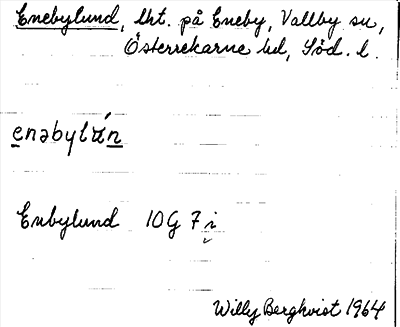 Enebylund, lht. på Eneby, Vallby sn,
Österrekarne hd, Söd. l.
enəbylún
Enbylund 10G 7i
Willy Bergkvist 1964